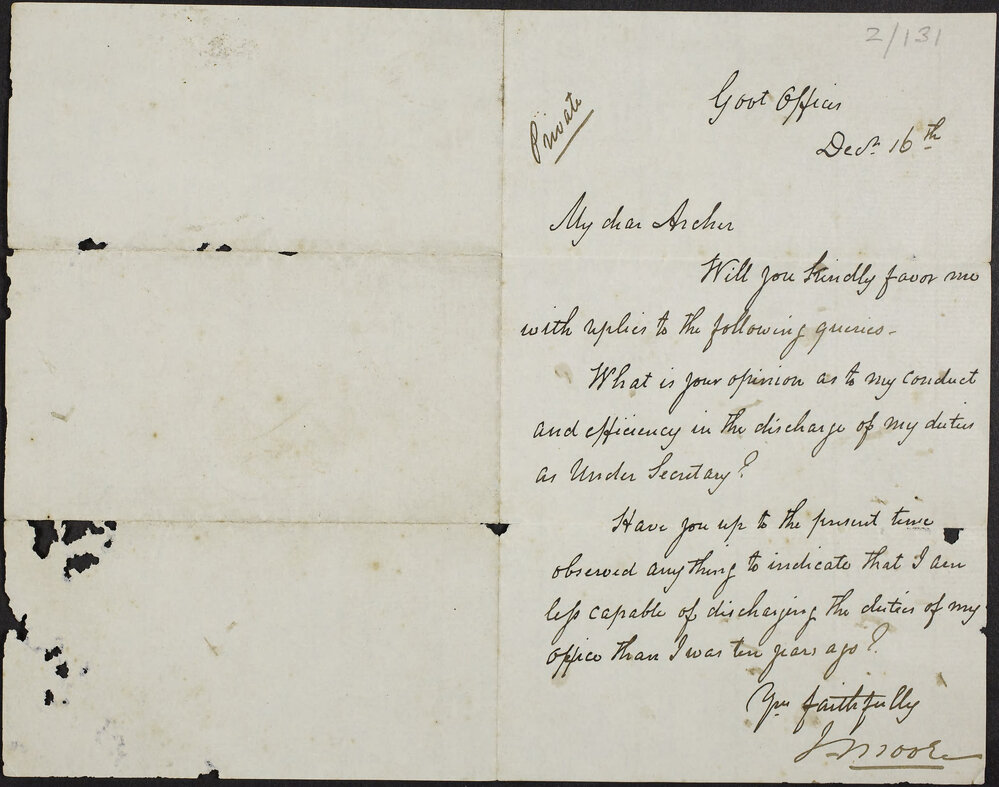 2/131
Private
Govt Offices
Decr. 16th
My dear Archer
Will you kindly favor me
with replies to the following queries -
What is your opinion as to my conduct
and efficiency in the discharge of my duties
as Under Secretary?
Have you up to the present time
observed anything to indicate that I am
less capable of discharging the duties of my
office than I was ten years ago?
Yrs faithfully
J Moore